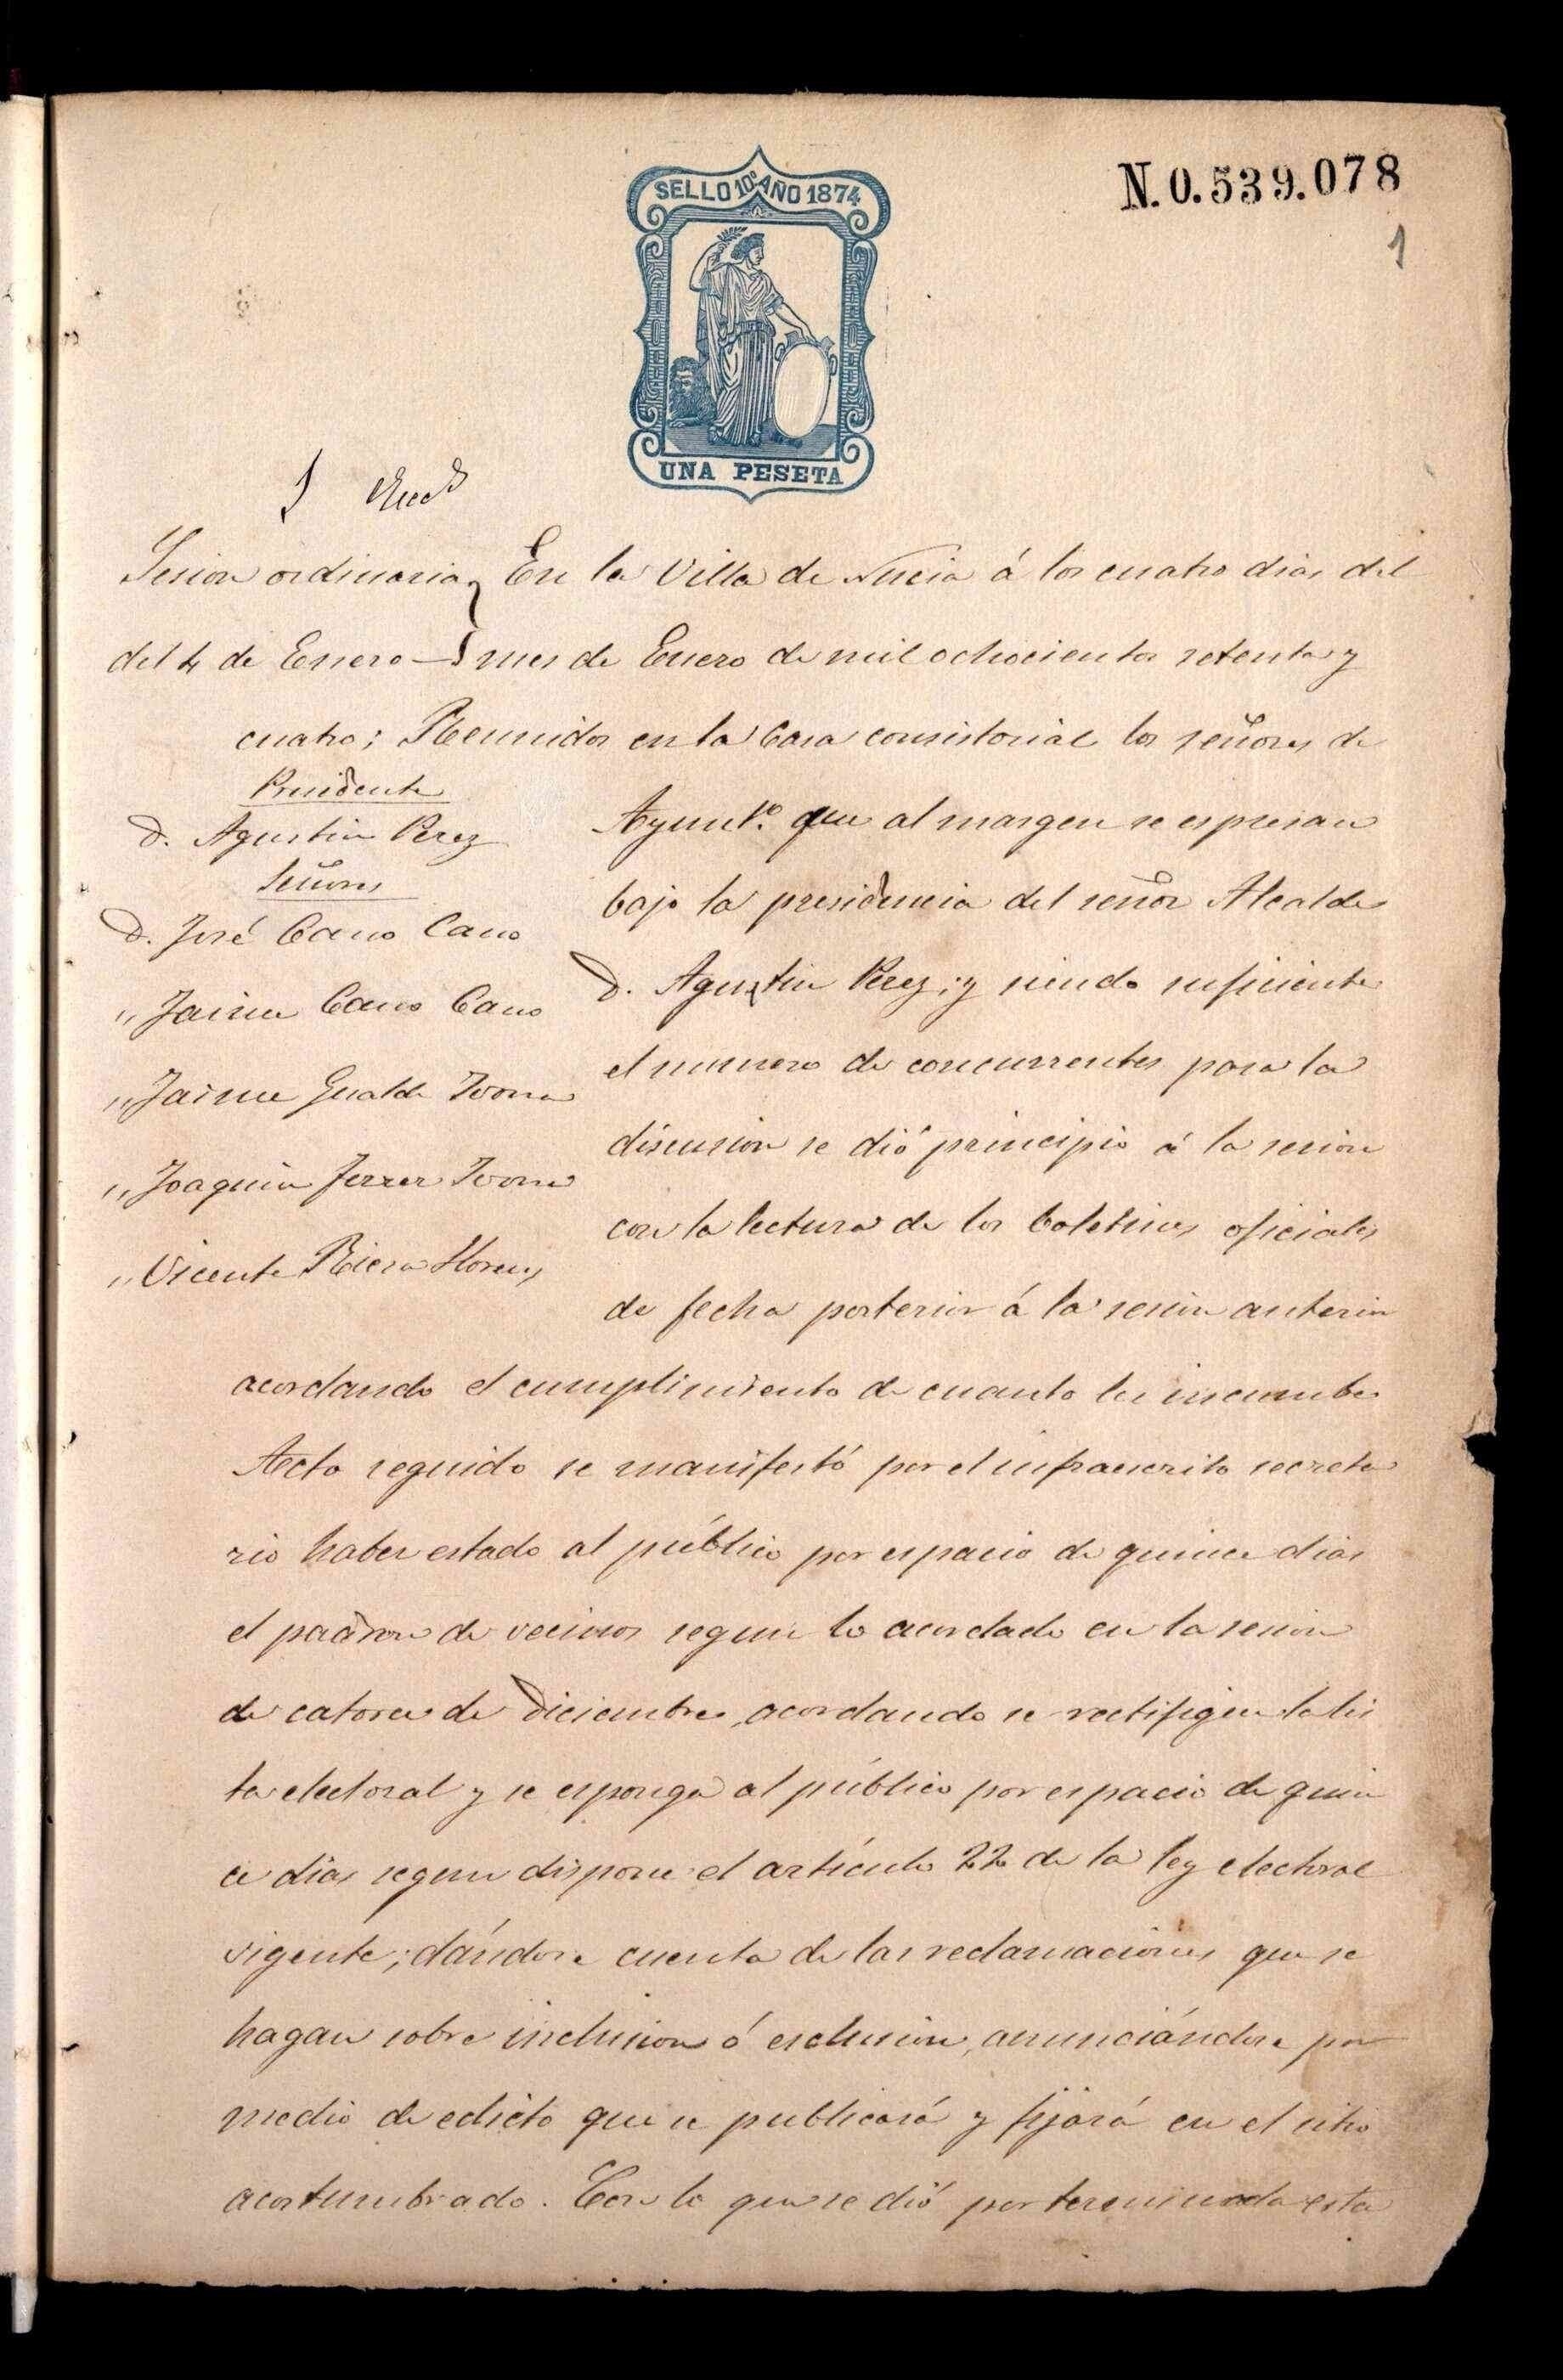 SELLO 10º AÑO 1874
N. 0.539.078
1
UNA PESETA
Sesion ordinaria
del 4 de Enero
En la Villa de Nucia á los cuatro dias del
mes de Enero de mil ochocientos setenta y
cuatro; Reunidos en la Casa consistorial los señores de
Presidente
D. Agustin Perez
Señores
D. José Cano Cano
" Jaime Cano Cano
" Jaime Gualde Ivorra
" Joaquin Ferrer Ivorra
" Vicente Riera Llorens
Ayunto. que al margen se espresan
bajo la presidencia del señor Alcalde
D. Agustin Perez; y siendo suficiente
el numero de concurrentes para la
discusion se dió principio á la sesion
con la lectura de los boletines oficiales
de fecha posterior á la sesion anterior
acordando el cumplimiento de cuanto les incumbe
Acto seguido se manifestó por el infraescrito secreta
rio haber estado al público por espacio de quince dias
el padron de vecinos segun lo acordado en la sesion
de catorce de Diciembre, acordando se rectifique la lis
ta electoral y se esponga al público por espacio de quin
ce dias segun dispone el artículo 22 de la ley electoral
vigente; dándose cuenta de las reclamaciones que se
hagan sobre inclusion ó esclusion, anunciándose por
medio de edicto que se publicará y fijará en el sitio
acostumbrado. Con lo que se dió por terminada esta